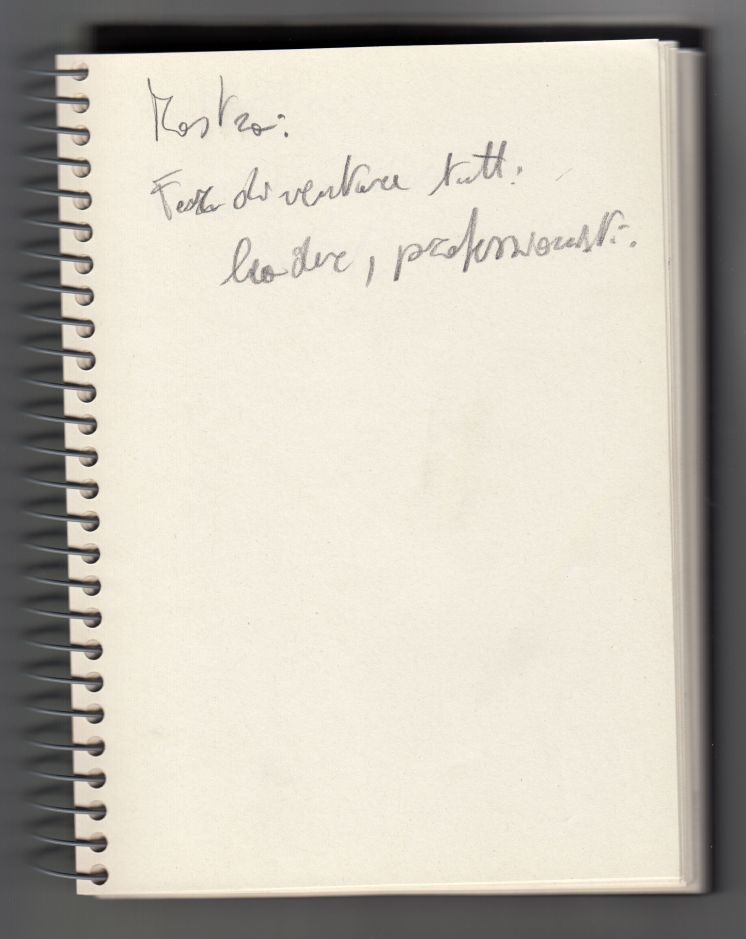 Mostro:
Far diventare tutti
leader, professionisti.